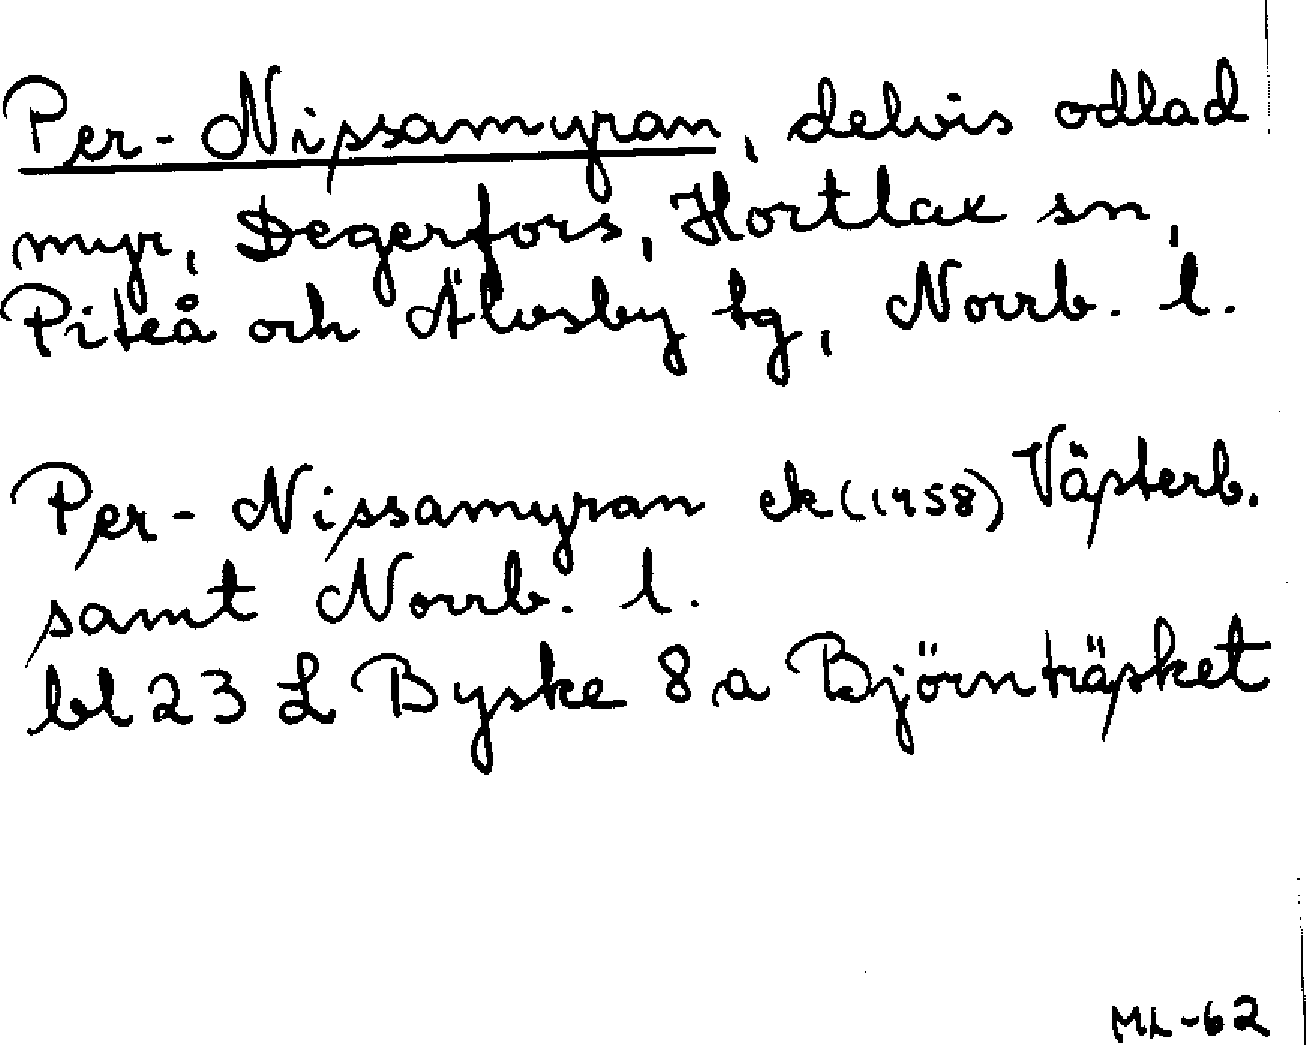 Per-Nissamyran, delvis odlad
myr, Degerfors, Hortlax sn,
Piteå och Älvsby tg, Norrb. l.
Per-Nissamyran ek (1958) Västerb.
samt Norrb. l.
bl 23 L Byske 8 a Björnträsket
ML-62